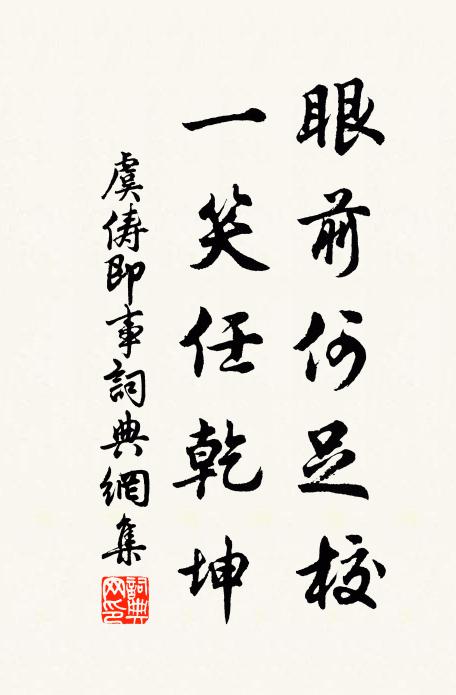 眼前何足校
一笑任乾坤
虞儔即事詞典網集
詞典
网印